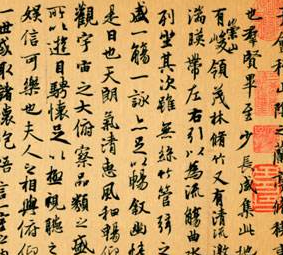 會稽山陰之蘭亭脩稧事
也羣賢畢至少長咸集此地
有崇山峻領茂林脩竹又有清流激
湍暎帶左右引以為流觴曲水
列坐其次雖無絲竹管弦之
盛一觴一詠亦足以暢叙幽情
是日也天朗氣清惠風和暢仰
觀宇宙之大俯察品類之盛
所以遊目騁懷足以極視聽之
娛信可樂也夫人之相與俯仰
一世或取諸懷抱悟言一室之